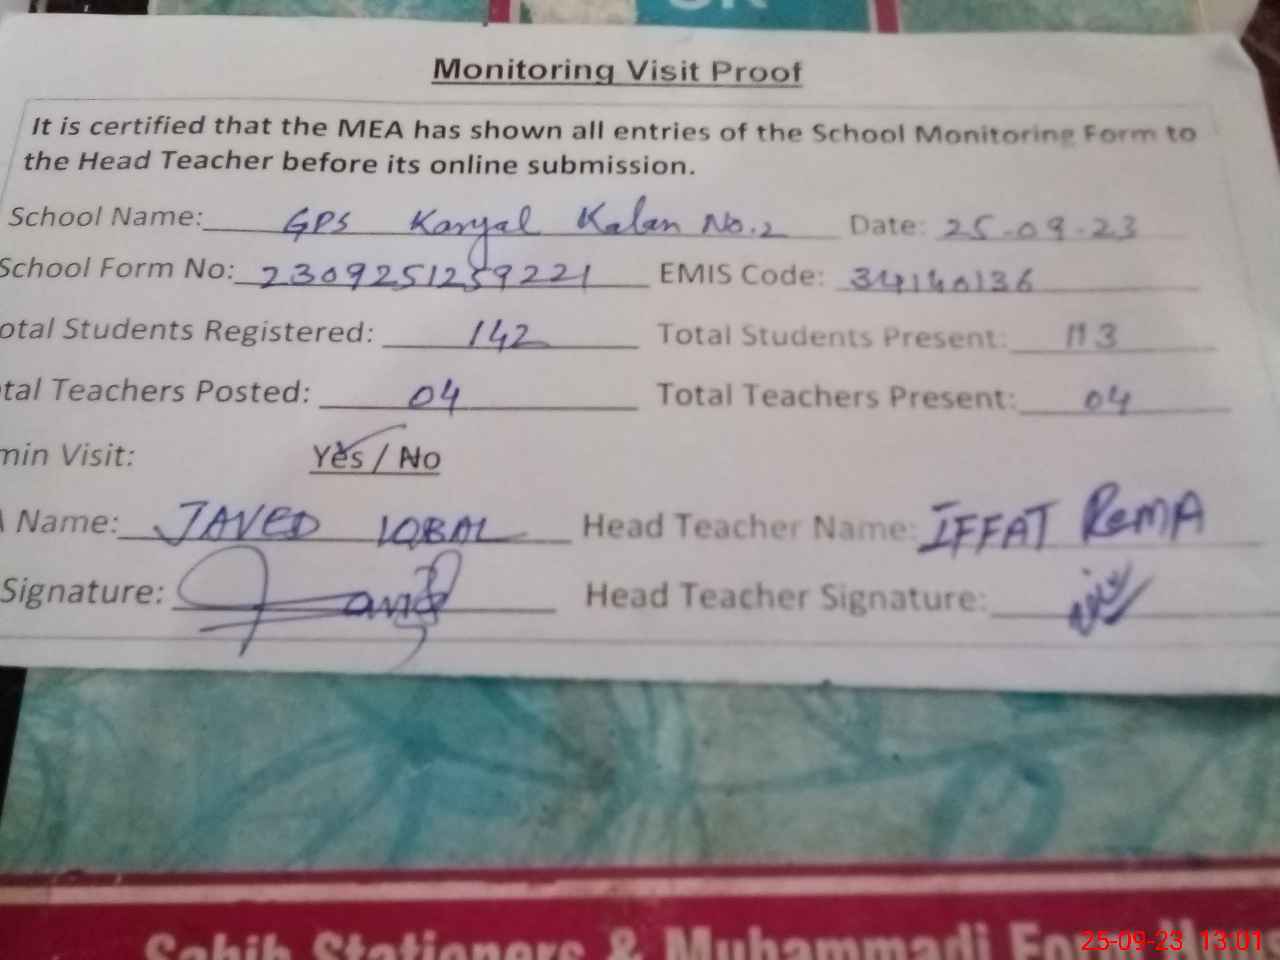 Monitoring Visit Proof
It is certified that the MEA has shown all entries of the School Monitoring Form to
the Head Teacher before its online submission.
School Name: GPS Karyal Kalan No.2 Date: 25-09-23
School Form No: 2309251259221 EMIS Code: 34140136
otal Students Registered: 142 Total Students Present: 113
tal Teachers Posted: 04 Total Teachers Present: 04
min Visit: Yes / No
Name: JAVED IQBAL Head Teacher Name: IFFAT RemA
Signature: Javed Head Teacher Signature:
Sahib Stationers & Muhammadi Form
25-09-23 13:01